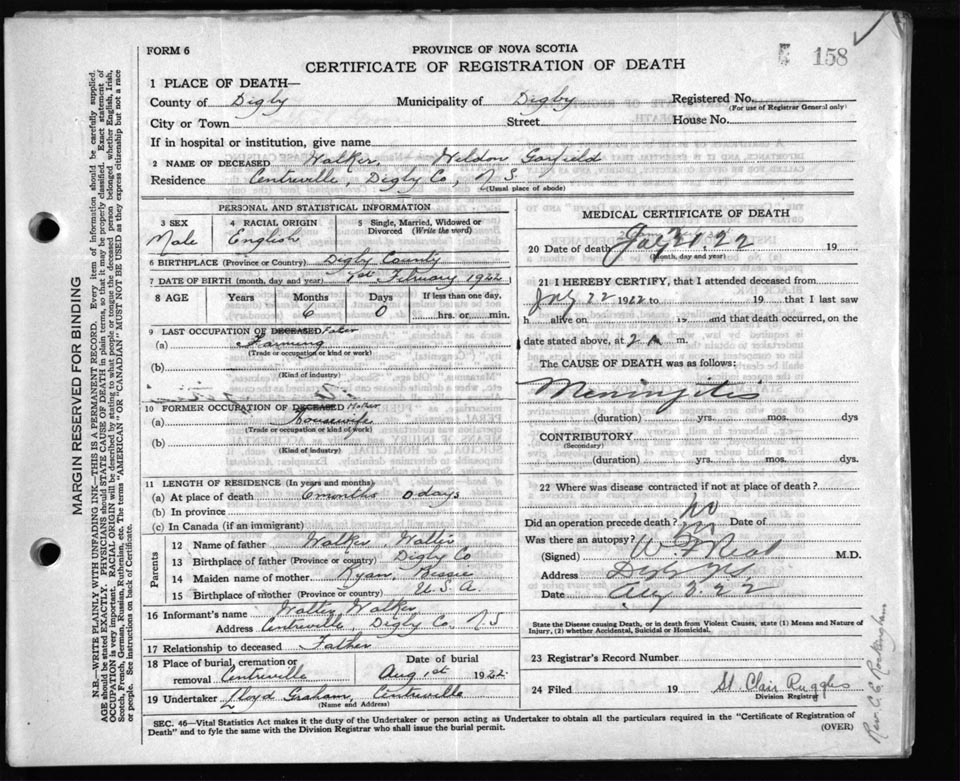 158
FORM 6
PROVINCE OF NOVA SCOTIA
CERTIFICATE OF REGISTRATION OF DEATH
1 PLACE OF DEATH—
County of Digby Municipality of Digby Registered No.
(For use of Registrar General only)
City or Town Street House No.
If in hospital or institution, give name
2 NAME OF DECEASED Walker, Weldon Garfield
Residence Centreville, Digby Co, N S.
(Usual place of abode)
PERSONAL AND STATISTICAL INFORMATION
3 SEX 4 RACIAL ORIGIN 5 Single, Married, Widowed or Divorced (Write the word)
Male English
6 BIRTHPLACE (Province or Country) Digby County
7 DATE OF BIRTH (month, day and year) February 1922
8 AGE Years Months Days If less than one day,
6 0 hrs. or min.
9 LAST OCCUPATION OF DECEASED Father
(a) Farming
(Trade or occupation or kind or work)
(b)
(Kind of industry)
10 FORMER OCCUPATION OF DECEASED Mother
(a) Housewife
(Trade or occupation or kind of work)
(b)
(Kind of industry)
11 LENGTH OF RESIDENCE (In years and months)
(a) At place of death 6 months 0 days
(b) In province
(c) In Canada (if an immigrant)
Parents
12 Name of father Walker,
13 Birthplace of father (Province or country) Digby Co
14 Maiden name of mother Ryan, Bessie
15 Birthplace of mother (Province or country) U.S.A.
16 Informant's name Walker
Address Centreville, Digby Co. N S
17 Relationship to deceased Father
18 Place of burial, cremation or removal Centreville Date of burial Aug 1st 1922.
19 Undertaker Lloyd Graham, Centreville
(Name and Address)
MEDICAL CERTIFICATE OF DEATH
20 Date of death July 22 19
(Month, day and year)
21 I HEREBY CERTIFY, that I attended deceased from
July 22 1922 to 19 that I last saw
h alive on 19 and that death occurred, on the
date stated above, at 2 m.
The CAUSE OF DEATH was as follows:
Meningitis
(duration) yrs. mos. dys
CONTRIBUTORY
(Secondary)
(duration) yrs. mos. dys.
22 Where was disease contracted if not at place of death?
Did an operation precede death? no Date of
Was there an autopsy? no
(Signed) M.D.
Address Digby NS
Date Aug 2. 22
State the Disease causing Death, or in death from Violent Causes, state (1) Means and Nature of Injury, (2) whether Accidental, Suicidal or Homicidal.
23 Registrar's Record Number
24 Filed 19 St. Clair Ruggles
Division Registrar
SEC. 46—Vital Statistics Act makes it the duty of the Undertaker or person acting as Undertaker to obtain all the particulars required in the "Certificate of Registration of
Death" and to fyle the same with the Division Registrar who shall issue the burial permit. (OVER)
MARGIN RESERVED FOR BINDING
N.B.—WRITE PLAINLY WITH UNFADING INK—THIS IS A PERMANENT RECORD. Every item of information should be carefully supplied.
AGE should be stated EXACTLY. PHYSICIANS should STATE CAUSE OF DEATH in plain terms, so that it may be properly classified. Exact statement of
OCCUPATION is very important. RACIAL ORIGIN will be described by stating to what people or tongue the deceased person belonged, whether English, Irish,
Scotch, French, German, Russian, Ruthenian, etc. The terms "AMERICAN" or "CANADIAN" MUST NOT BE USED as they express citizenship but not a race
or people. See instructions on back of Certificate.